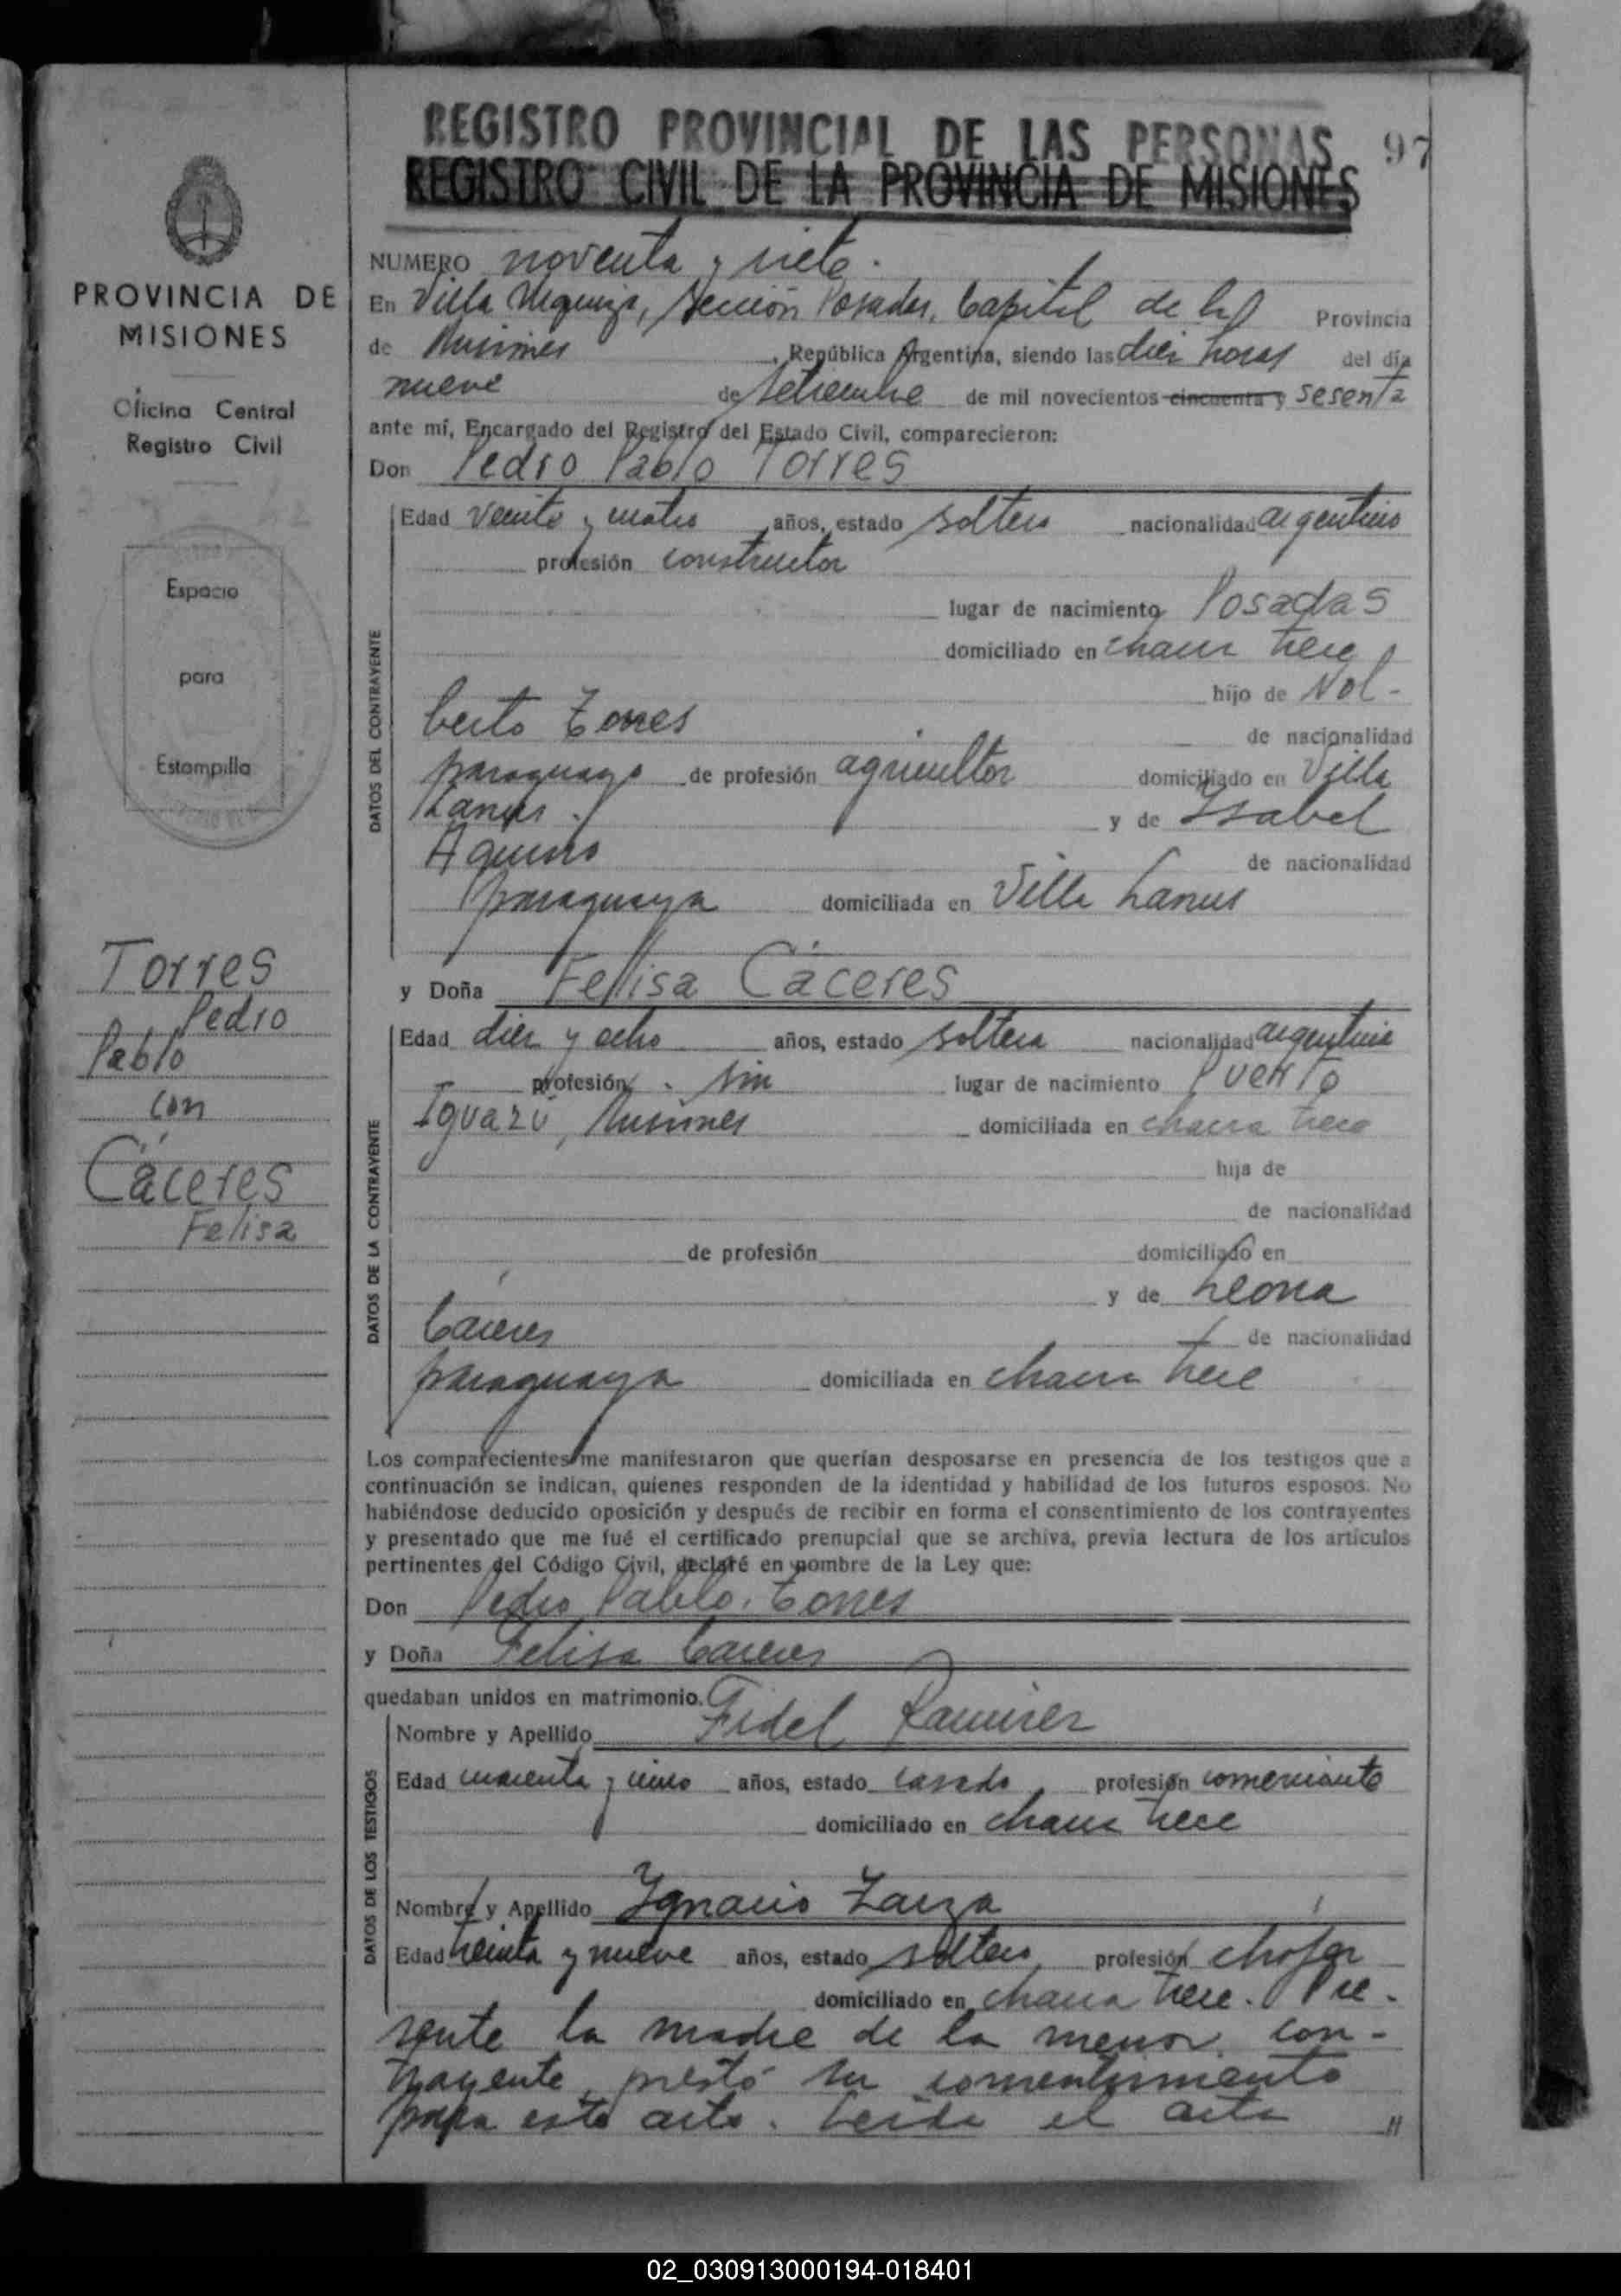 REGISTRO PROVINCIAL DE LAS PERSONAS 97
REGISTRO CIVIL DE LA PROVINCIA DE MISIONES
PROVINCIA DE
MISIONES
Oficina Central
Registro Civil
Espacio
para
Estampilla
Torres
Pedro
Pablo
con
Cáceres
Felisa
NUMERO noventa y siete.
En Villa Urquiza, Sección Posadas, Capital de la Provincia
de Misiones, República Argentina, siendo las diez horas del día
nueve de setiembre de mil novecientos cincuenta y sesenta
ante mí, Encargado del Registro del Estado Civil, comparecieron:
Don Pedro Pablo Torres
DATOS DEL CONTRAYENTE
Edad veinte y cuatro años, estado soltero nacionalidad argentino
profesión constructor
lugar de nacimiento Posadas
domiciliado en chacra trece
hijo de Nol-
berto Torres
de nacionalidad
paraguayo de profesión agricultor domiciliado en Villa
Lanús. y de Isabel
Aquino de nacionalidad
paraguaya domiciliada en Villa Lanus
y Doña Felisa Cáceres
DATOS DE LA CONTRAYENTE
Edad diez y ocho años, estado soltera nacionalidad argentina
profesión sin lugar de nacimiento Puerto
Iguazú, Misiones domiciliada en chacra trece
hija de
de nacionalidad
de profesión domiciliado en
y de Leona
Cáceres de nacionalidad
paraguaya domiciliada en chacra trece
Los comparecientes me manifestaron que querían desposarse en presencia de los testigos que a
continuación se indican, quienes responden de la identidad y habilidad de los futuros esposos. No
habiéndose deducido oposición y después de recibir en forma el consentimiento de los contrayentes
y presentado que me fué el certificado prenupcial que se archiva, previa lectura de los artículos
pertinentes del Código Civil, declaré en nombre de la Ley que:
Don Pedro Pablo Torres
y Doña Felisa Cáceres
quedaban unidos en matrimonio.
DATOS DE LOS TESTIGOS
Nombre y Apellido Fidel Ramirez
Edad cuarenta y cinco años, estado casado, profesión comerciante
domiciliado en chacra trece
Nombre y Apellido Ignacio Zarza
Edad treinta y nueve años, estado soltero, profesión chofer
domiciliado en chacra trece. Pre-
sente la madre de la menor con-
trayente, prestó su consentimiento
para este acto. Leída el acta //
02_030913000194-018401